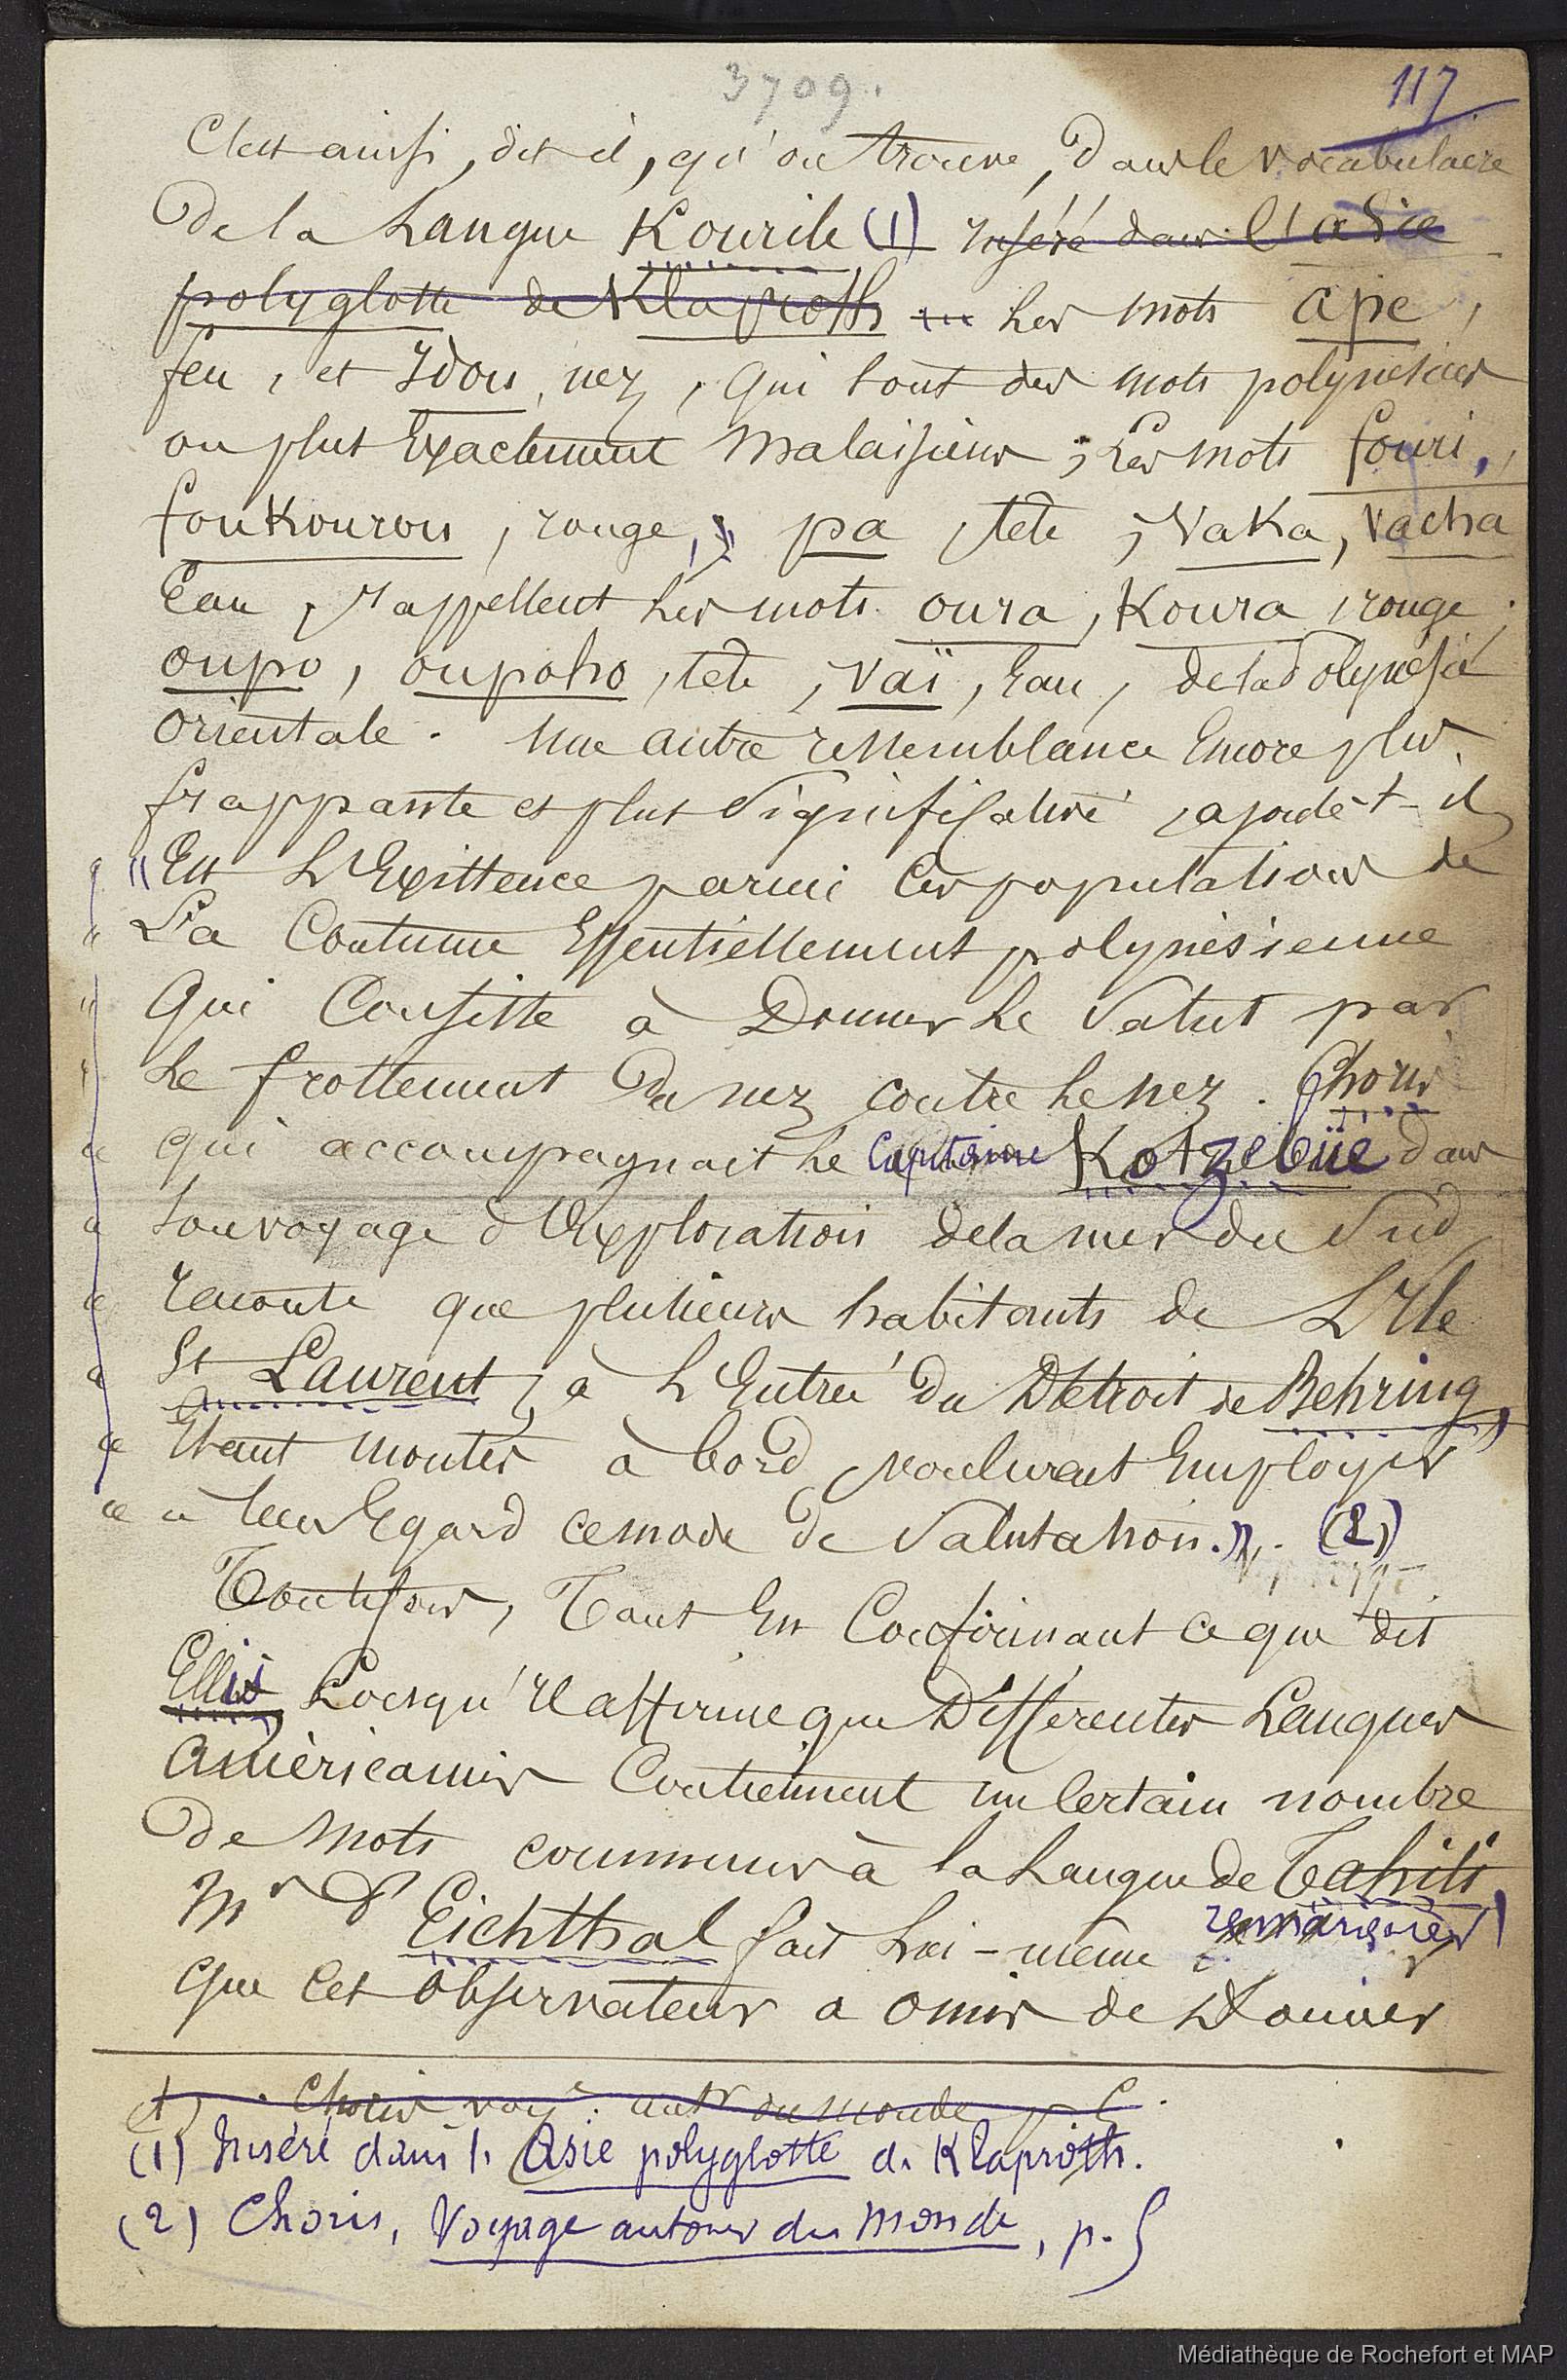 3709.
117
C'est ainsi, dit-il, qu'on trouve, dans le vocabulaire
de la Langue Kourile (1) inséré dans l'asie
polyglotte de Klaproth les mots ape,
feu, et Idou, nez, qui sont des mots polynésiens
ou plus Exactement Malaisiens ; Les mots fouri,
foukourou, rouge, pa, tête ; Vaka, Vacha
Eau, rappellent les mots oura, Koura, rouge ;
oupo, oupoho, tête, Vaï, Eau, de la Polynésie
orientale. Une autre ressemblance Encore plus
frappante et plus Significative, ajoute-t-il
"Est L'Existence parmi ces populations de
" La Coutume Essentiellement polynésienne
" Qui Consiste à Donner le Salut par
" Le frottement du nez contre le nez. Choris
" qui accompagnait le Capitaine Kotzebüe dans
" son voyage d'Exploration de la mer du Sud
" raconte que plusieurs habitants de L'Ile
" St Laurent, à L'Entrée du Détroit de Behring,
" Etant montés à bord, voulurent Employer
" à leur Egard ce mode de Salutation.". (2)
Toutefois, Tout En Confirmant ce que dit
Ellis Lorsqu'Il affirme que Différentes Langues
Américaines Contiennent un Certain nombre
de Mots communs à la Langue de Tahiti
Mr d'Eichthal fait Lui-même remarquer
que cet observateur a omis de Donner
1) Choris voy. autr du monde p.
(1) Inséré dans l'Asie polyglotte de Klaproth.
(2) Choris, Voyage autour du Monde, p.
Médiathèque de Rochefort et MAP